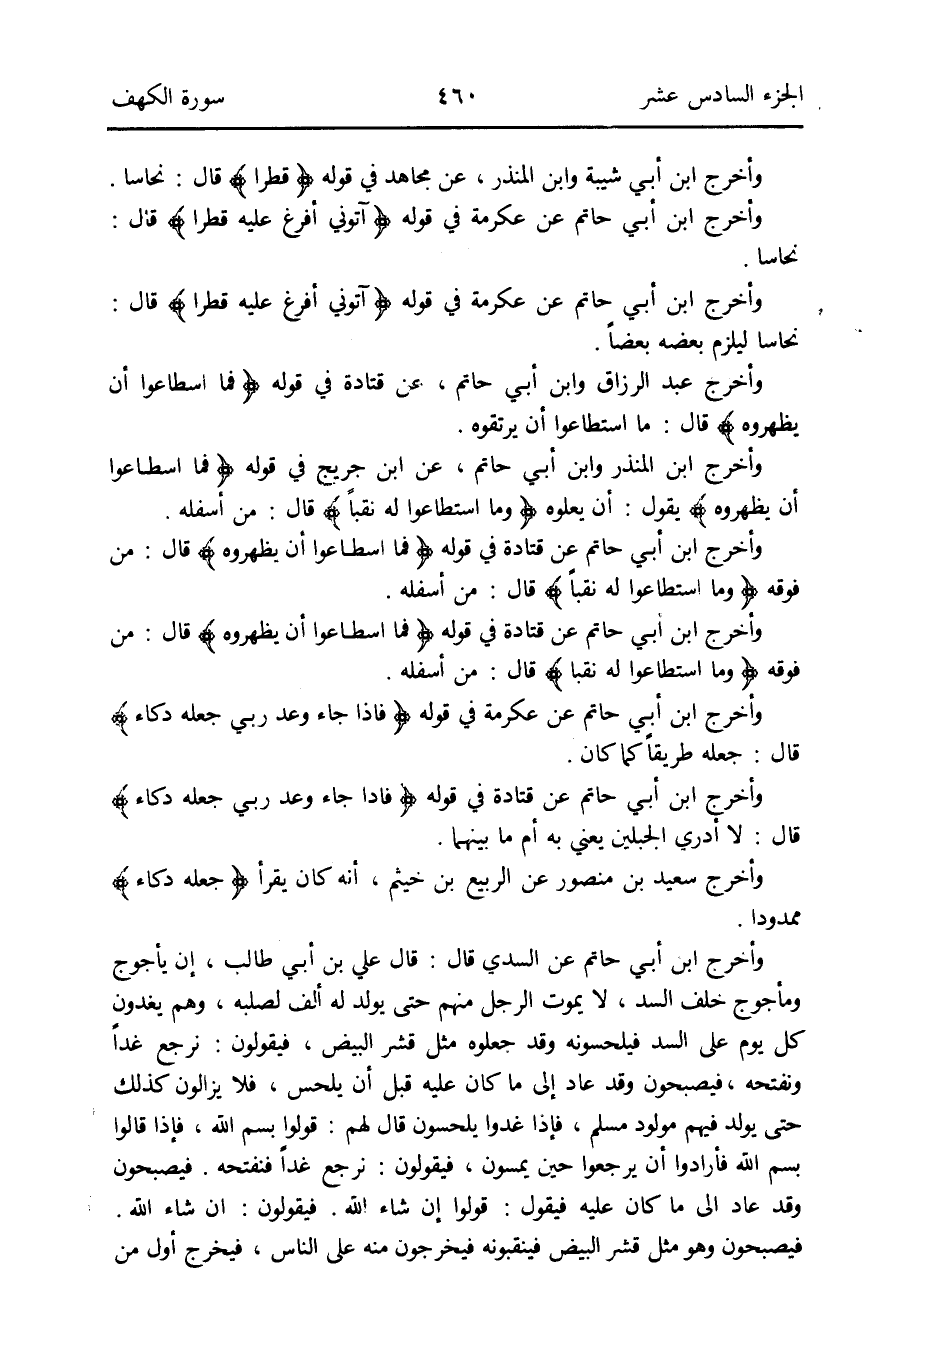 الجزء السادس عشر ٤٦٠ سورة الكهف
وأخرج ابن أبي شيبة وابن المنذر ، عن مجاهد في قوله ﴿ قطرا ﴾ قال : نحاسا .
وأخرج ابن أبي حاتم عن عكرمة في قوله ﴿ آتوني أفرغ عليه قطرا ﴾ قال :
نحاسا .
وأخرج ابن أبي حاتم عن عكرمة في قوله ﴿ آتوني أفرغ عليه قطرا ﴾ قال :
نحاسا ليلزم بعضه بعضاً .
وأخرج عبد الرزاق وابن أبي حاتم ، عن قتادة في قوله ﴿ فما اسطاعوا أن
يظهروه ﴾ قال : ما استطاعوا أن يرتقوه .
وأخرج ابن المنذر وابن أبي حاتم ، عن ابن جريج في قوله ﴿ فما اسطاعوا
أن يظهروه ﴾ يقول : أن يعلوه ﴿ وما استطاعوا له نقباً ﴾ قال : من أسفله .
وأخرج ابن أبي حاتم عن قتادة في قوله ﴿ فما اسطاعوا أن يظهروه ﴾ قال : من
فوقه ﴿ وما استطاعوا له نقباً ﴾ قال : من أسفله .
وأخرج ابن أبي حاتم عن قتادة في قوله ﴿ فما اسطاعوا أن يظهروه ﴾ قال : من
فوقه ﴿ وما استطاعوا له نقبا ﴾ قال : من أسفله .
وأخرج ابن أبي حاتم عن عكرمة في قوله ﴿ فاذا جاء وعد ربي جعله دكاء ﴾
قال : جعله طريقاً كما كان .
وأخرج ابن أبي حاتم عن قتادة في قوله ﴿ فادا جاء وعد ربي جعله دكاء ﴾
قال : لا أدري الجبلين يعني به أم ما بينهما .
وأخرج سعيد بن منصور عن الربيع بن خيثم ، أنه كان يقرأ ﴿ جعله دكاء ﴾
ممدودا .
وأخرج ابن أبي حاتم عن السدي قال : قال علي بن أبي طالب ، إن يأجوج
ومأجوج خلف السد ، لا يموت الرجل منهم حتى يولد له ألف لصلبه ، وهم يغدون
كل يوم على السد فيلحسونه وقد جعلوه مثل قشر البيض ، فيقولون : نرجع غداً
ونفتحه ، فيصبحون وقد عاد إلى ما كان عليه قبل أن يلحس ، فلا يزالون كذلك
حتى يولد فيهم مولود مسلم ، فإذا غدوا يلحسون قال لهم : قولوا بسم الله ، فإذا قالوا
بسم الله فأرادوا أن يرجعوا حين يمسون ، فيقولون : نرجع غداً فنفتحه . فيصبحون
وقد عاد الى ما كان عليه فيقول : قولوا إن شاء الله . فيقولون : ان شاء الله .
فيصبحون وهو مثل قشر البيض فينقبونه فيخرجون منه على الناس ، فيخرج أول من